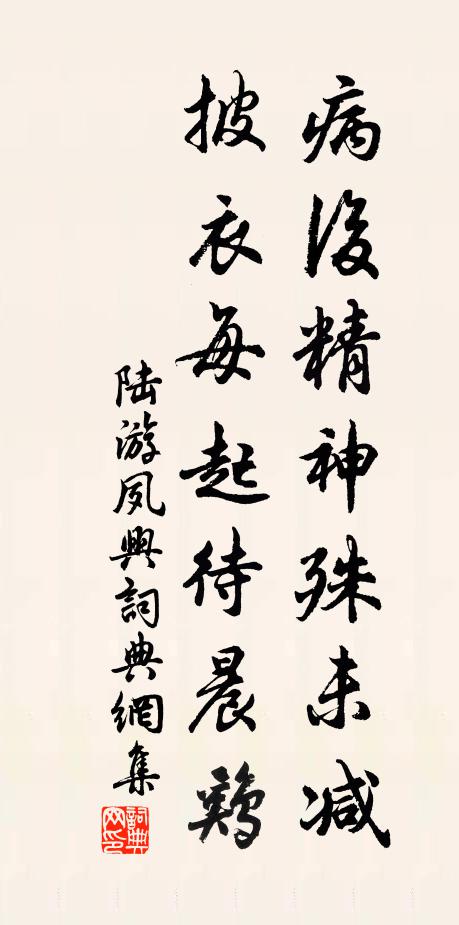 病後精神殊未減
披衣每起待晨鷄
陸游夙興詞典網集
詞典網印